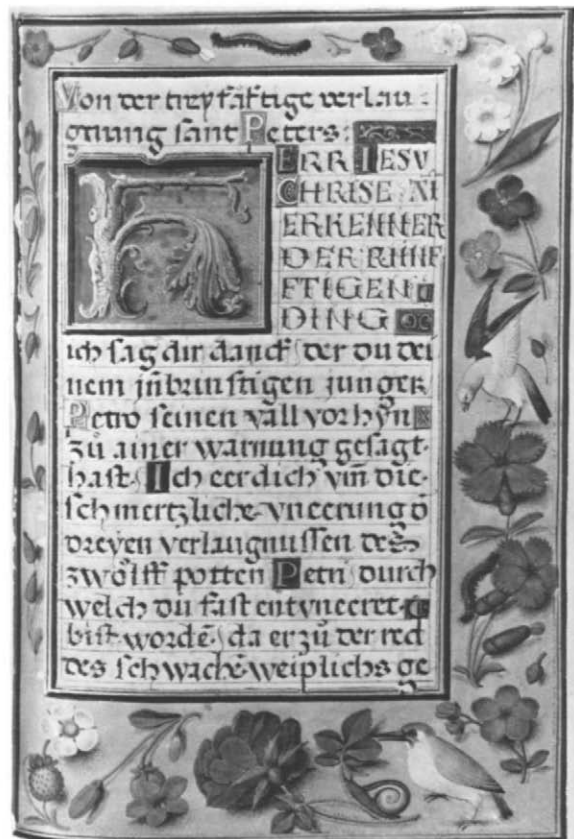 Von der treyfäftige verlau-
gnung sant Peters:
HERR IESV
CHRISE AI
ERKENNER
DER KUNF
FTIGEN
DING
ich sag dir danck der du dei
nem inbrunstigen junger
Petro seinen vall vorhyn
zů ainer warnung gesagt
hast. Ich eer dich vm̃ die
schmertzliche vneerung d̄
dreyen verlaugnussen des
zwölff potten Petri durch
welch du fast entvneeret
bist wordē. da er zů der red
des schwachē weiplichs ge